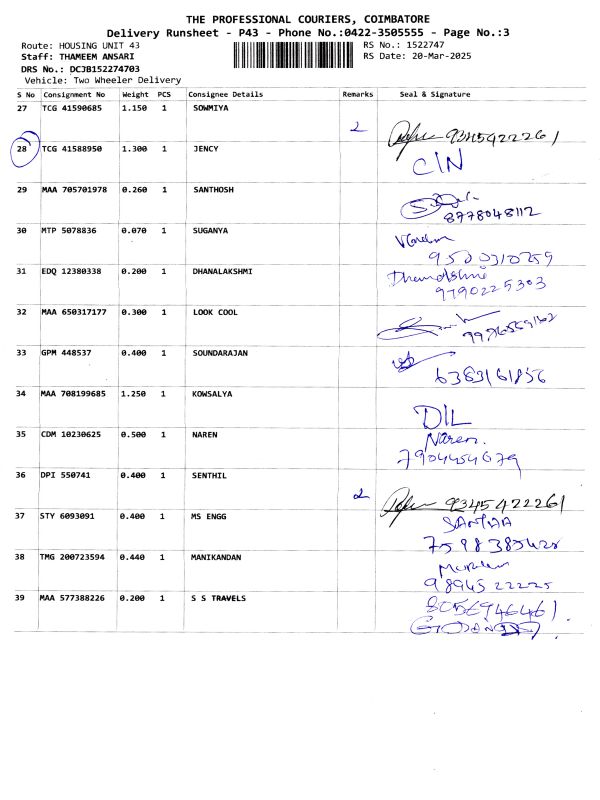 THE PROFESSIONAL COURIERS, COIMBATORE
Delivery Runsheet - P43 - Phone No.:0422-3505555 - Page No.:3
Route: HOUSING UNIT 43 RS No.: 1522747
Staff: THAMEEM ANSARI RS Date: 20-Mar-2025
DRS No.: DCJB152274703
Vehicle: Two Wheeler Delivery
S No Consignment No Weight PCS Consignee Details Remarks Seal & Signature
27 TCG 41590685 1.150 1 SOWMIYA 2
28 TCG 41588950 1.300 1 JENCY C/N
29 MAA 705701978 0.260 1 SANTHOSH 8778048112
30 MTP 5078836 0.070 1 SUGANYA
31 EDQ 12380338 0.200 1 DHANALAKSHMI Dhanalakshmi 9790225303
32 MAA 650317177 0.300 1 LOOK COOL
33 GPM 448537 0.400 1 SOUNDARAJAN 6383161856
34 MAA 708199685 1.250 1 KOWSALYA D/L
35 CDM 10230625 0.500 1 NAREN Naren. 7904454679
36 DPI 550741 0.400 1 SENTHIL 2 9345422261
37 STY 6093091 0.400 1 MS ENGG
38 TMG 200723594 0.440 1 MANIKANDAN 9894522225
39 MAA 577388226 0.200 1 S S TRAVELS 8056946461